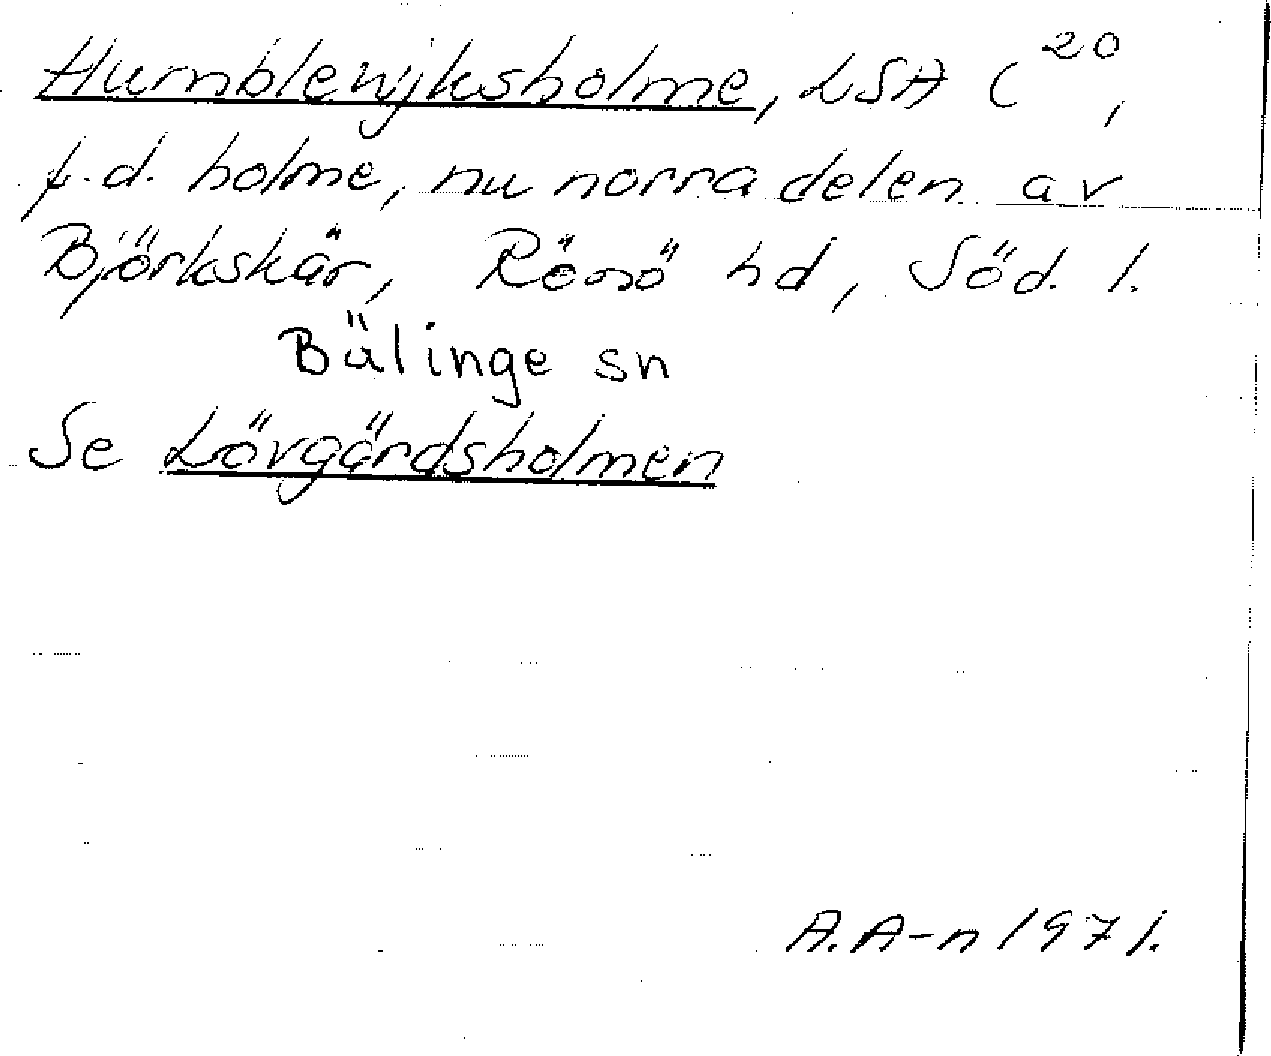 Humblewijksholme, LSA C 20,
f.d. holme, nu norra delen av
Björkskär, Rönö hd, Söd. l.
Bälinge sn
Se Lövgärdsholmen
A.A-n 1971.